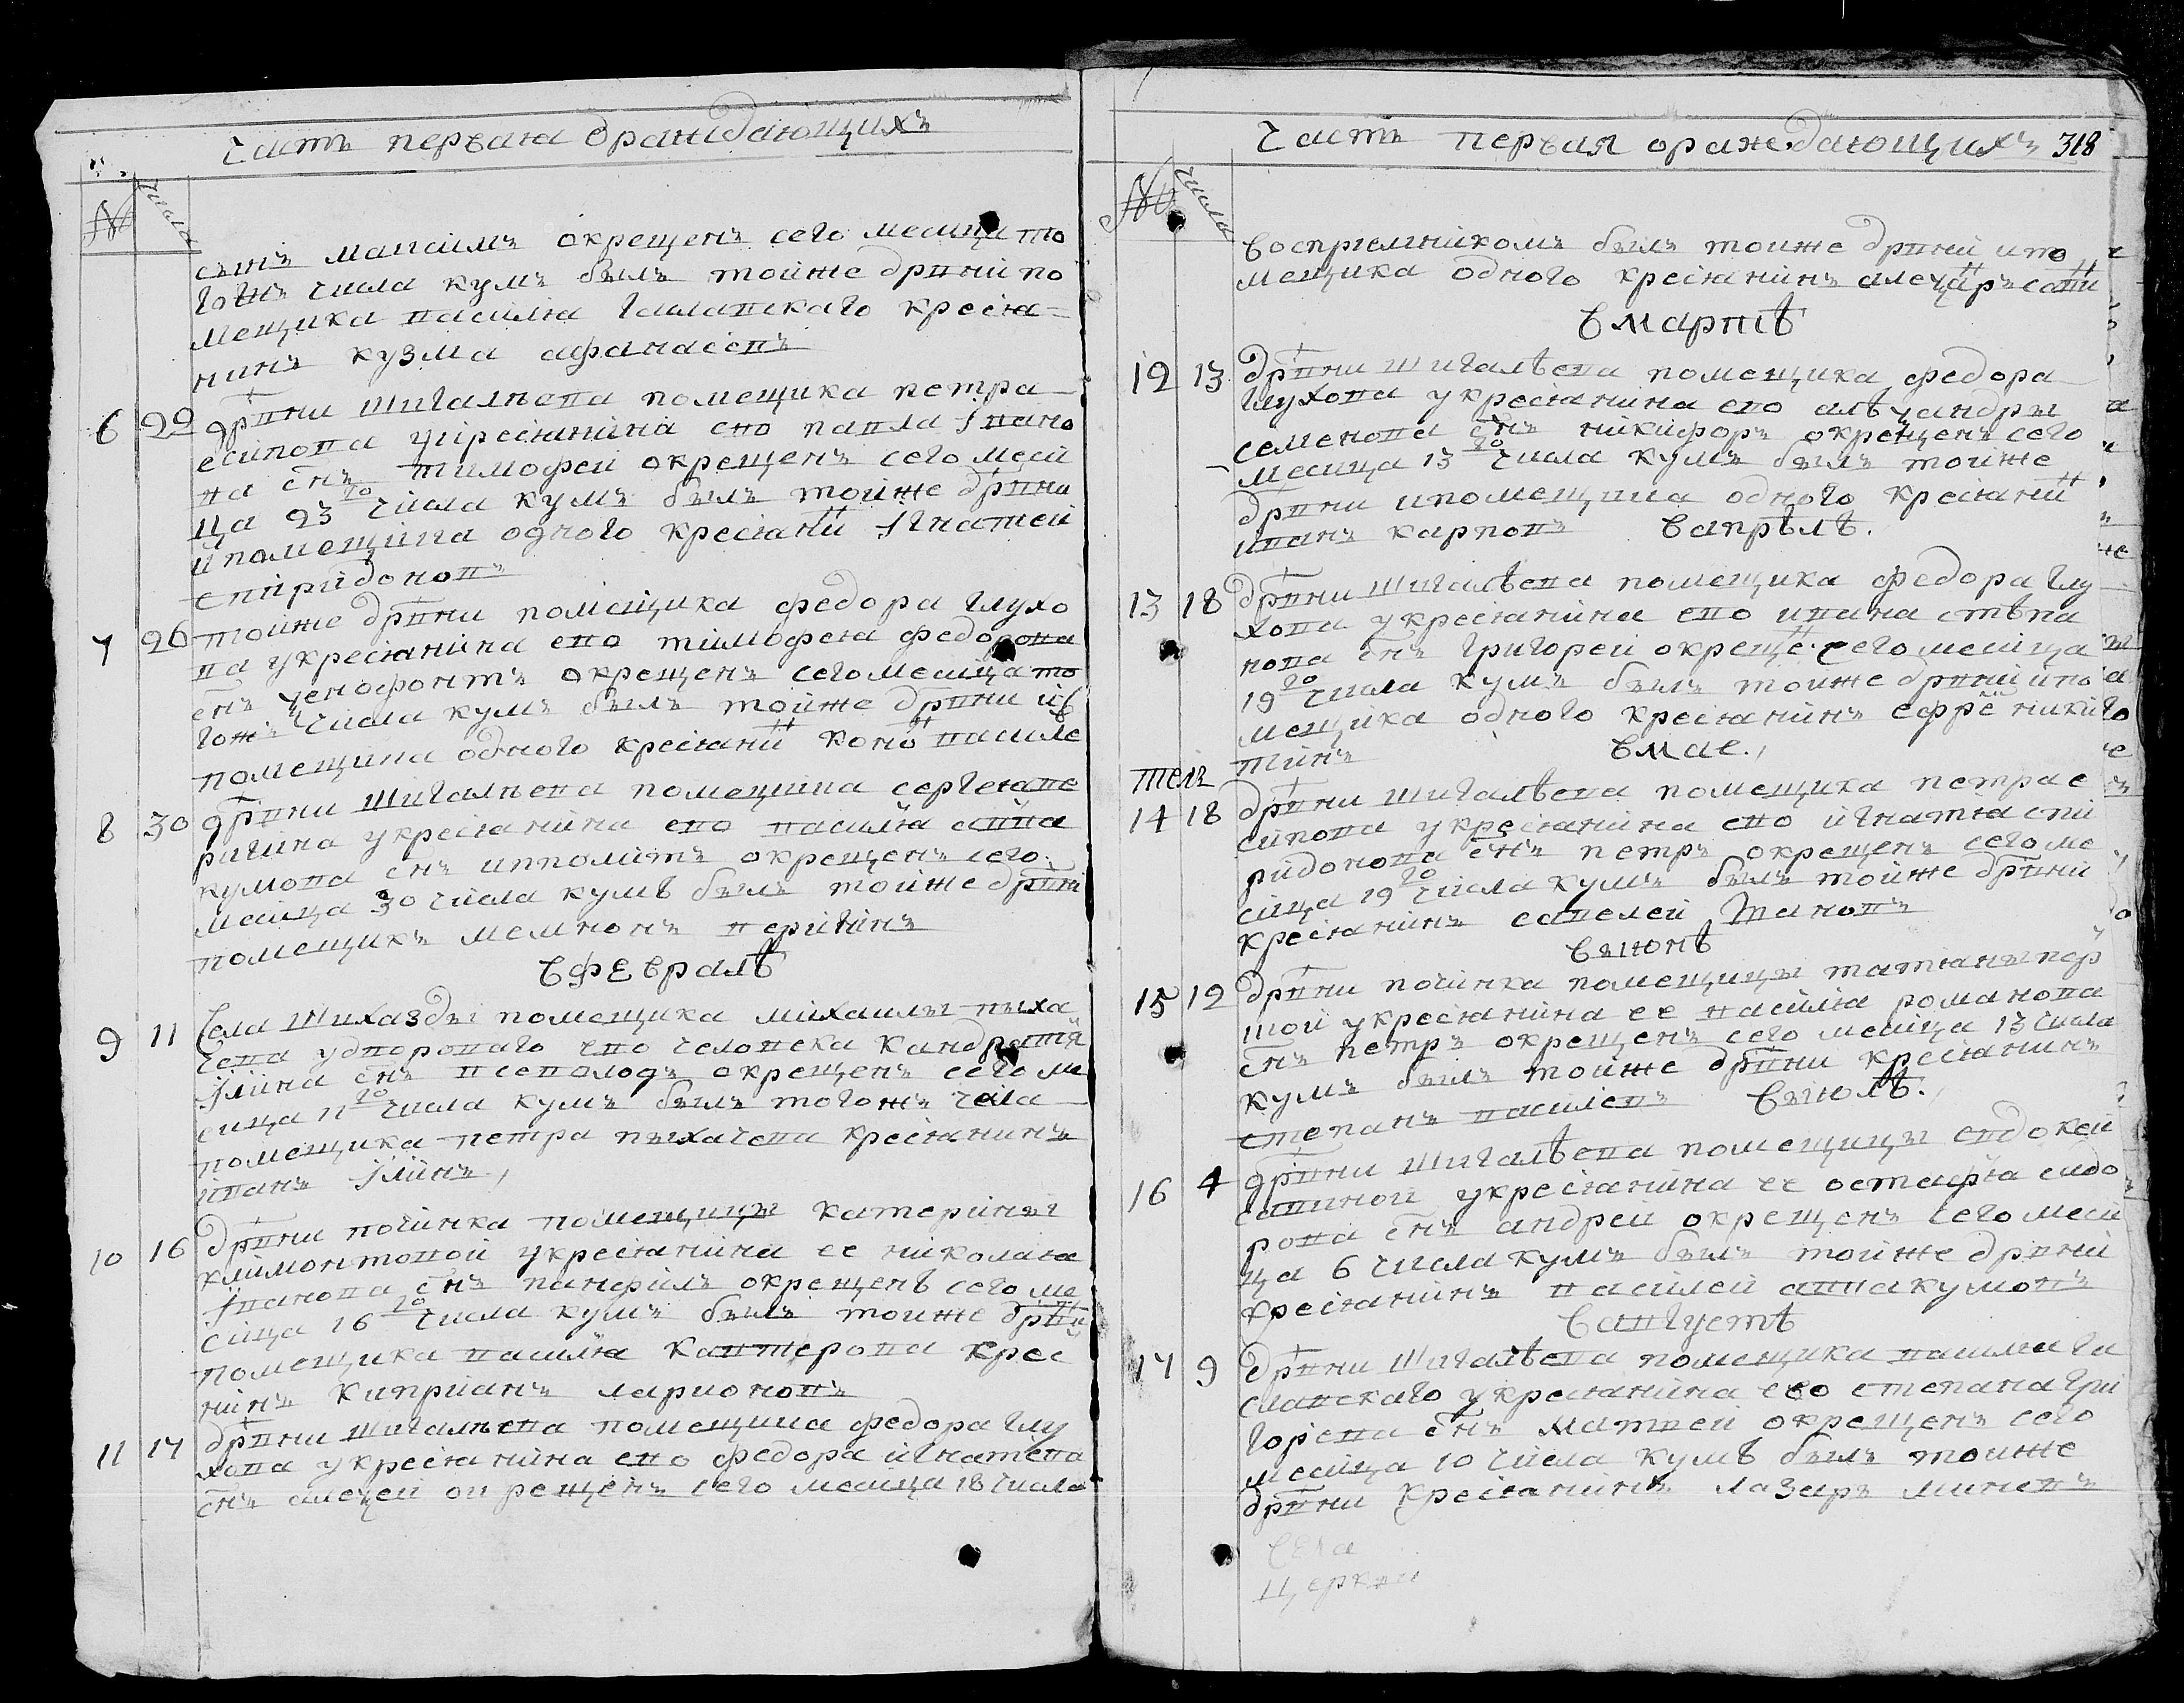 часть первая ораждающихъ
№ числа
сынъ маѯимъ окрещенъ сего месица то
гожъ числа кумъ былъ тойже дрвни по
мещика василя гаславскаго крестя=
нинъ кузма афанасевъ
6 22 дрвни шигалѣева помещика петра
есипова укрестянина ево павла Iвано
ва снъ тимофей окрещенъ сего меси
ца 23 го числа кумъ былъ тойже дрвни
ипомещика одного крестяни Iгнатей
спиридоновъ
7 26 тойже дрвни помещика федора глухо
ва укрестянина ево тимофея федорова
снъ ѯенофонтъ окрещенъ сего месица то
гожъ числа кумъ былъ тойже дрвни и
помещика одного крестяни коно василе
8 30 дрвни шигалѣева помещика сергея пе
ригина укрестянина ево василя авва
кумова снъ ипполитъ окрещенъ сего
месица 30 числа кумъ былъ тойже дрвни
помещикъ мемнонъ перигинъ
вфевралѣ
9 11 села шихазды помещика михаилы пыха
чева удворового ево человека кандратя
Iлина снъ всеволодъ окрещенъ сего ме
сица 11 го числа кумъ былъ тогожъ села
помещика петра пыхачева крестянинъ
иванъ Iлинъ,
10 16 дрвни починка помещицы катерины
климонтовой укрестянина ее николая
Iванова снъ панфилъ окрещенъ сего ме
сица 16 го числа кумъ былъ тойже дрвни
помещика василя кавтерова крес
нинъ киприанъ ларионовъ
11 17 дрвни шигалѣева помещика федора глу
хова укрестянина ево федора игнатева
снъ алеѯей окрещенъ сего месица 18 числа
часть первая ораждающихъ 318
№ числа
воспрiемникомъ былъ тойже дрвни ипо
мещика одного крестянинъ алеѯар сави
вмартѣ
12 13 дрвни шигалѣева помещика федора
глухова укрестянина ево алѣѯандры
семенова снъ никифоръ окрещенъ сего
месица 13 го числа кумъ былъ тойже
дрвни ипомещика одного крестяни
иванъ карповъ вапрѣлѣ.
13 18 дрвни шигалѣева помещика федора глу
хова укрестянина ево ивана стѣпа
нова снъ григорей окреще сего месица
19 го числа кумъ былъ тойже дрвни ипо
мещика одного крестянинъ ефре ники
тинъ вмае.
14 18 дрвни шигалѣева помещика петра е
сипова укрестянина ево игнатя спи
ридонова снъ петръ окрещенъ сего ме
сица 19 го числа кумъ былъ тойже дрвни
крестянинъ савелей Iвановъ
вѣюнѣ
15 12 дрвни починка помещицы татяны пор
шой укрестянина ее василя романова
снъ петръ окрещенъ сего месица 13 числа
кумъ былъ тойже дрвни крестянинъ
степанъ василевъ вѣюлѣ.
16 4 дрвни шигалѣева помещицы евдокеи
савиной укрестянина ее остафя сидо
рова снъ андреи окрещенъ сего меси
ца 6 числа кумъ былъ тойже дрвни
крестянинъ василей аввакумовъ
вавгустѣ
17 9 дрвни шигалѣева помещика василя га
славскаго укрестянина ево степана гри
горева снъ матвей окрещенъ сего
месица 10 числа кумъ былъ тойже
дрвни крестянинъ лазаръ минеевъ
села
церкви